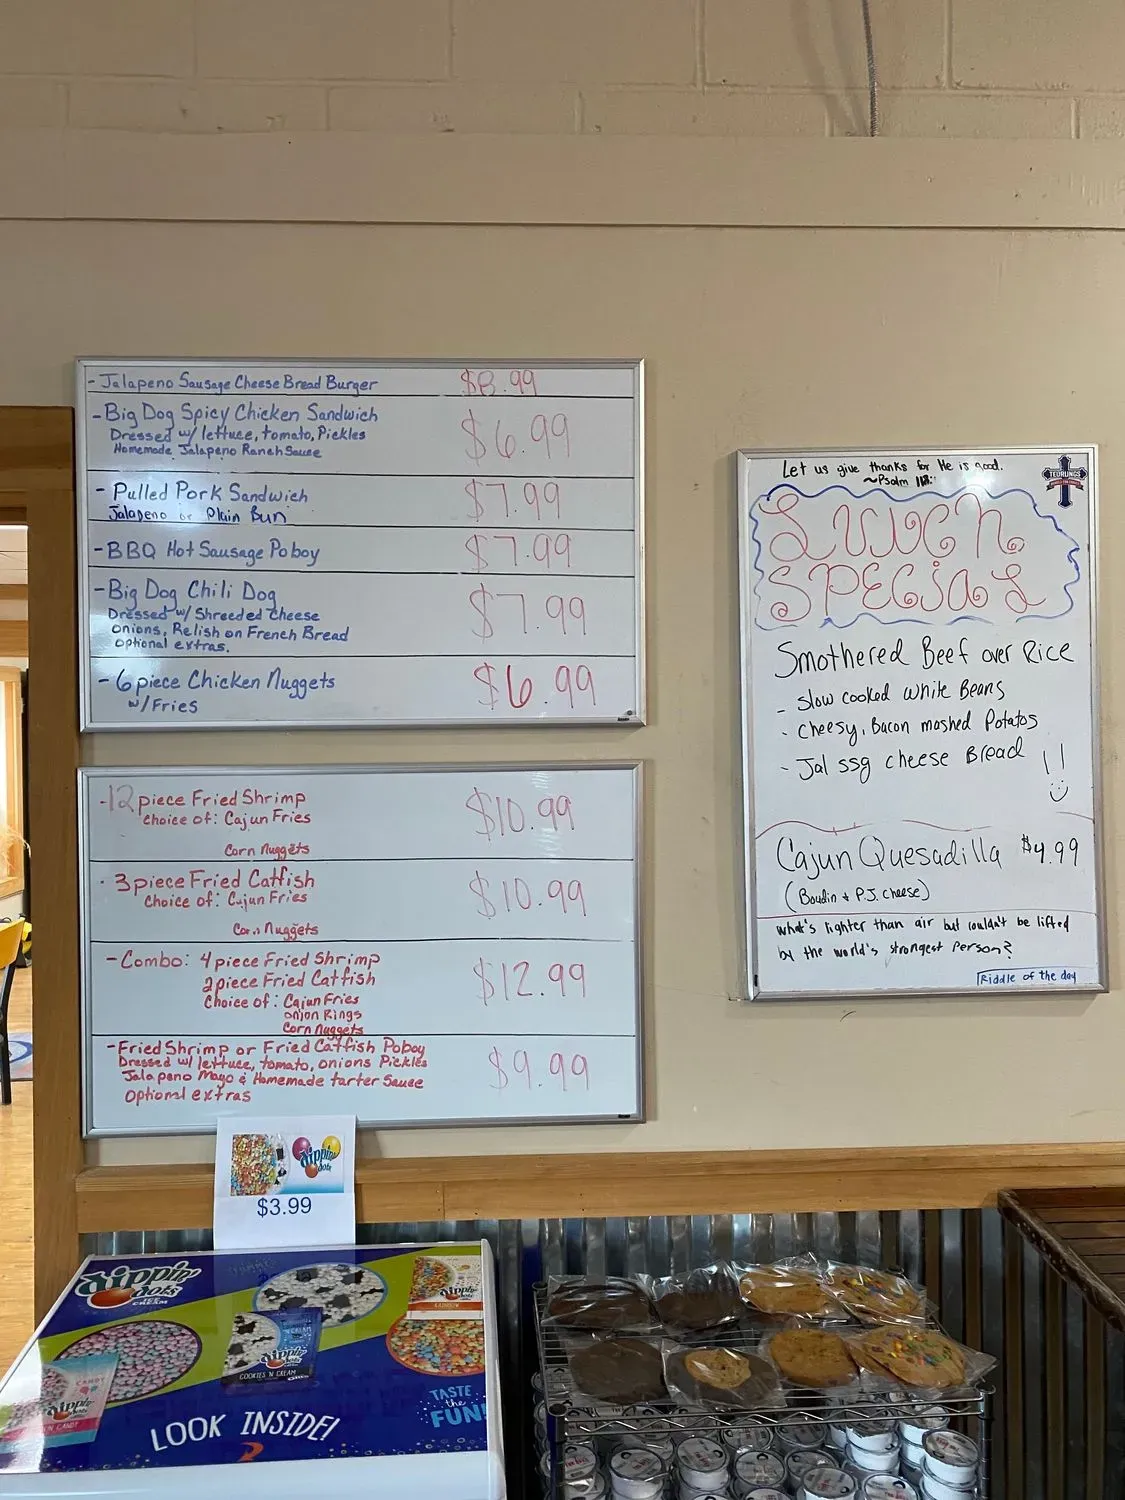 - Jalapeno Sausage Cheese Bread Burger $8.99
- Big Dog Spicy Chicken Sandwich $6.99
Dressed w/ lettuce, tomato, Pickles
Homemade Jalapeno Ranch Sauce
- Pulled Pork Sandwich $7.99
Jalapeno or Plain Bun
- BBQ Hot Sausage Poboy $7.99
- Big Dog Chili Dog $7.99
Dressed w/ Shreeded Cheese
onions, Relish on French Bread
optional extras.
- 6 piece Chicken Nuggets $6.99
w/Fries
- 12 piece Fried Shrimp $10.99
choice of: Cajun Fries
Corn Nuggets
- 3 piece Fried Catfish $10.99
Choice of: Cajun Fries
Corn Nuggets
- Combo: 4 piece Fried Shrimp $12.99
2 piece Fried Catfish
Choice of: Cajun Fries
onion Rings
Corn Nuggets
- Fried Shrimp or Fried Catfish Poboy $9.99
Dressed w/ lettuce, tomato, onions Pickles
Jalapeno Mayo & Homemade tarter Sauce
optional extras
Let us give thanks for He is good.
~Psalm
TEURLINGS
LUNCH
SPECiAL
Smothered Beef over Rice
- slow cooked white Beans
- cheesy, Bacon mashed Potatos
- Jal ssg cheese Bread !!
Cajun Quesadilla $4.99
(Boudin + P.J. cheese)
what's lighter than air but couldn't be lifted
by the world's strongest person?
Riddle of the day
dippin' dots
$3.99
dippin' dots
ICE CREAM
RAINBOW
COOKIES 'N CREAM
dippin' dots
LOOK INSIDE!
TASTE
the
FUN!